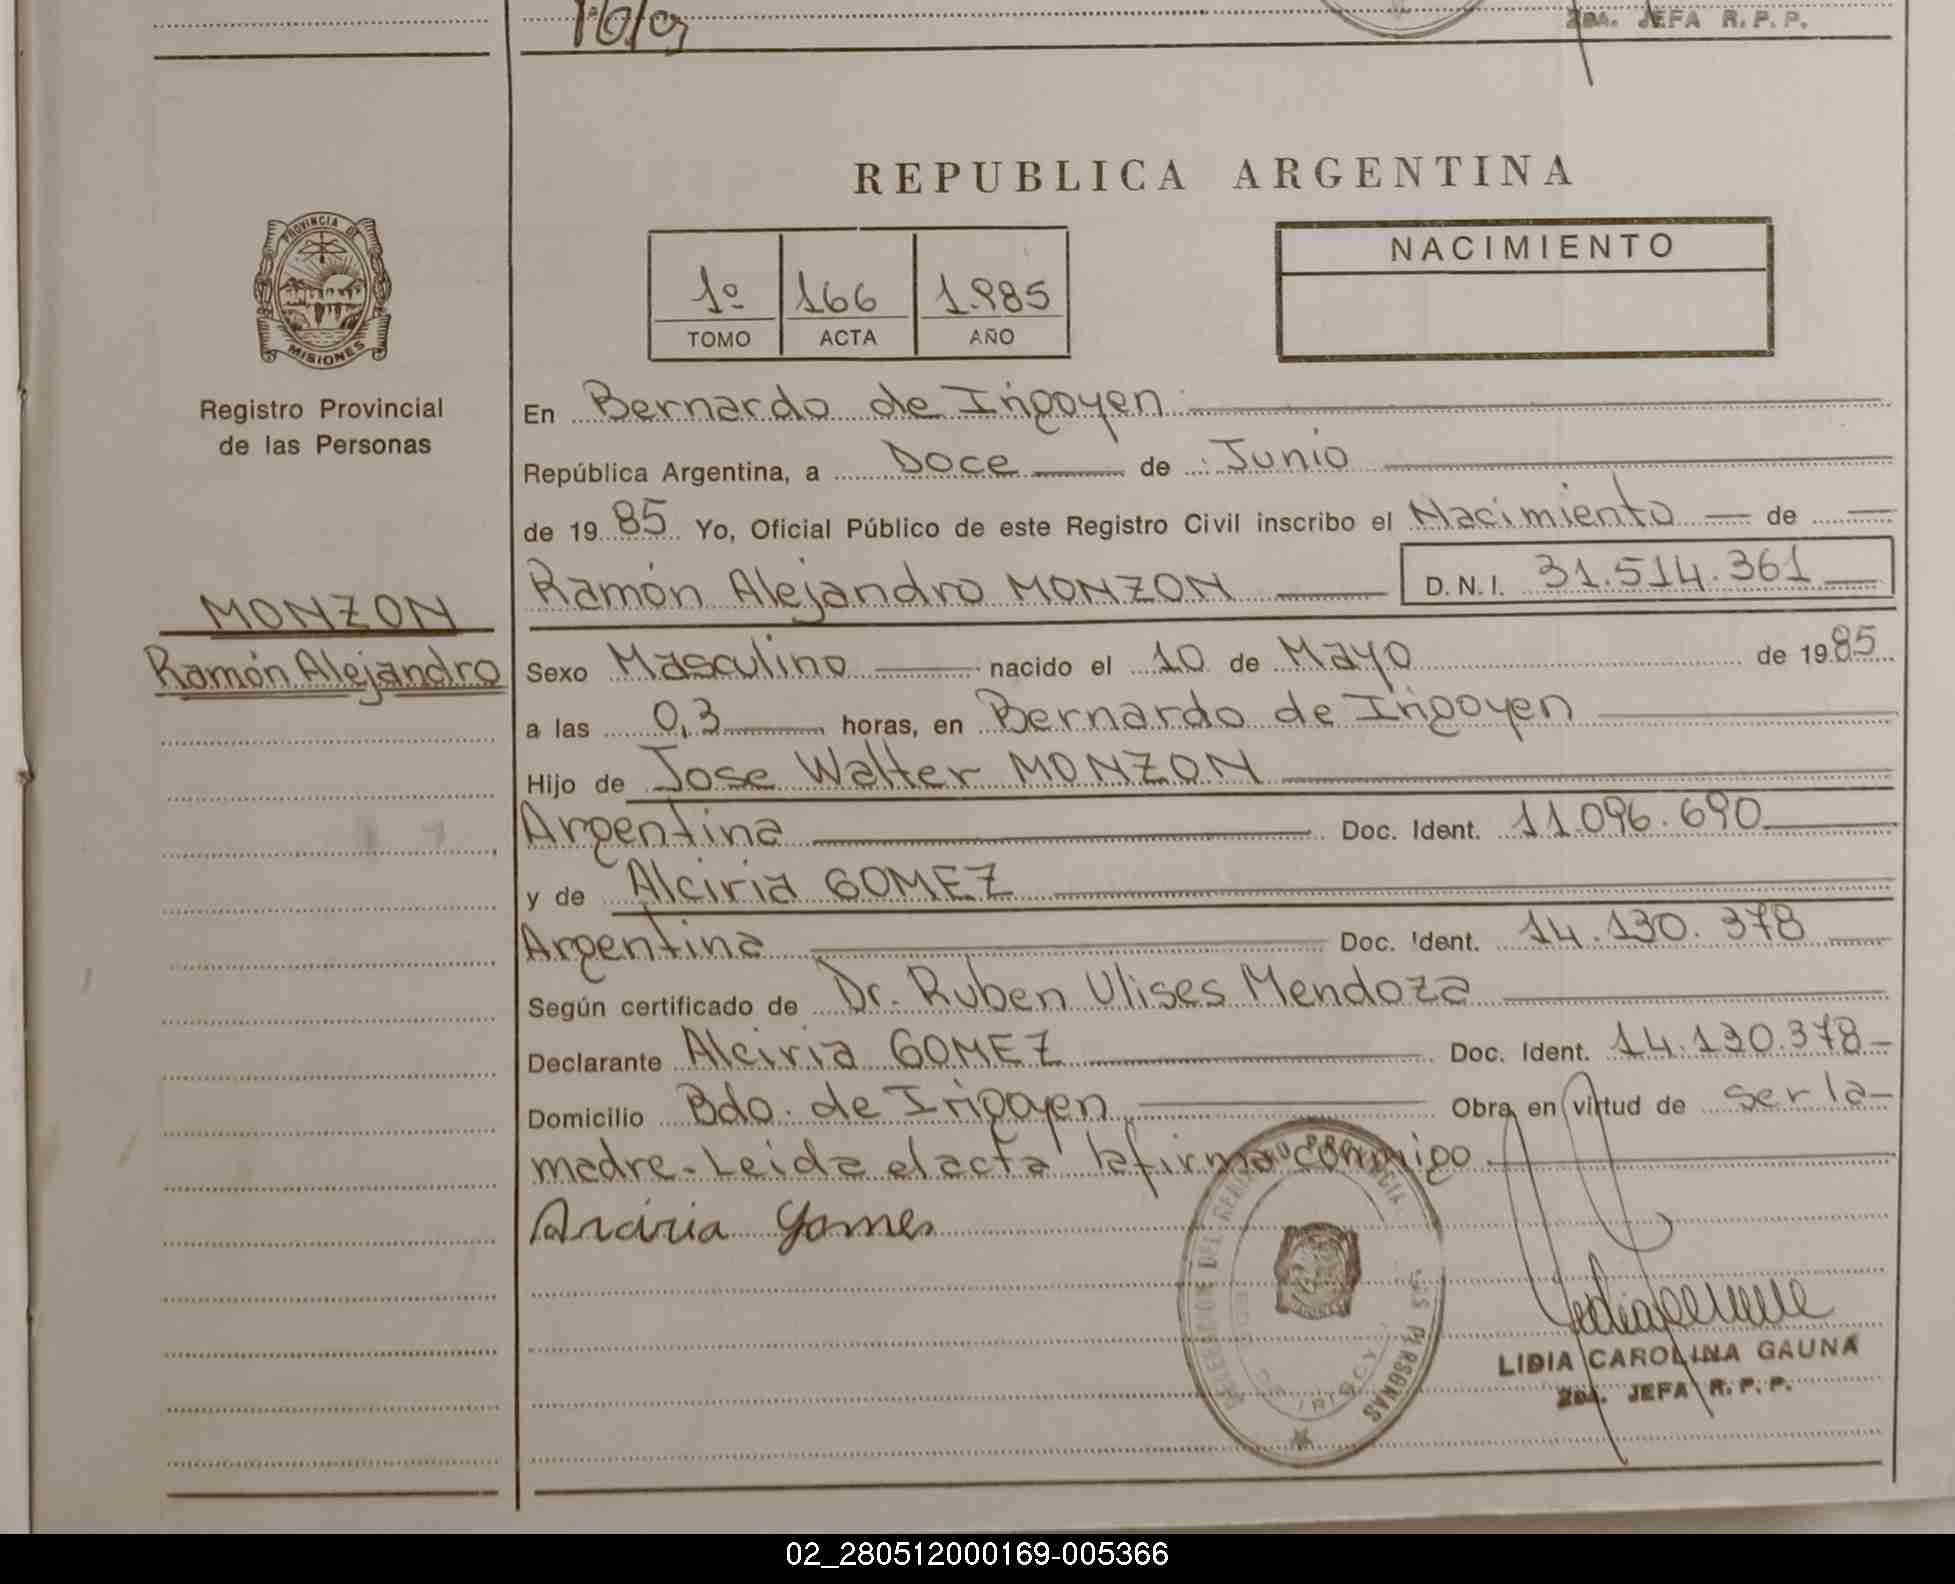 2DA. JEFA R. P. P.
REPUBLICA ARGENTINA
PROVINCIA DE
MISIONES
Registro Provincial
de las Personas
1º 166 1.985
TOMO ACTA AÑO
NACIMIENTO
En Bernardo de Irigoyen
República Argentina, a Doce de Junio
de 19 85 Yo, Oficial Público de este Registro Civil inscribo el Nacimiento de
Ramón Alejandro MONZON D.N.I. 31.514.361
MONZON
Ramón Alejandro
Sexo Masculino nacido el 10 de Mayo de 19 85
a las 0,3 horas, en Bernardo de Irigoyen
Hijo de Jose Walter MONZON
Argentina Doc. Ident. 11.096.690
y de Alciria GOMEZ
Argentina Doc. Ident. 14.130.378
Según certificado de Dr. Ruben Ulises Mendoza
Declarante Alciria GOMEZ Doc. Ident. 14.130.378
Domicilio Bdo. de Irigoyen Obra en virtud de ser la
madre. Leida el acta la firma conmigo
LIDIA CAROLINA GAUNA
2DA. JEFA R. P. P.
02_280512000169-005366